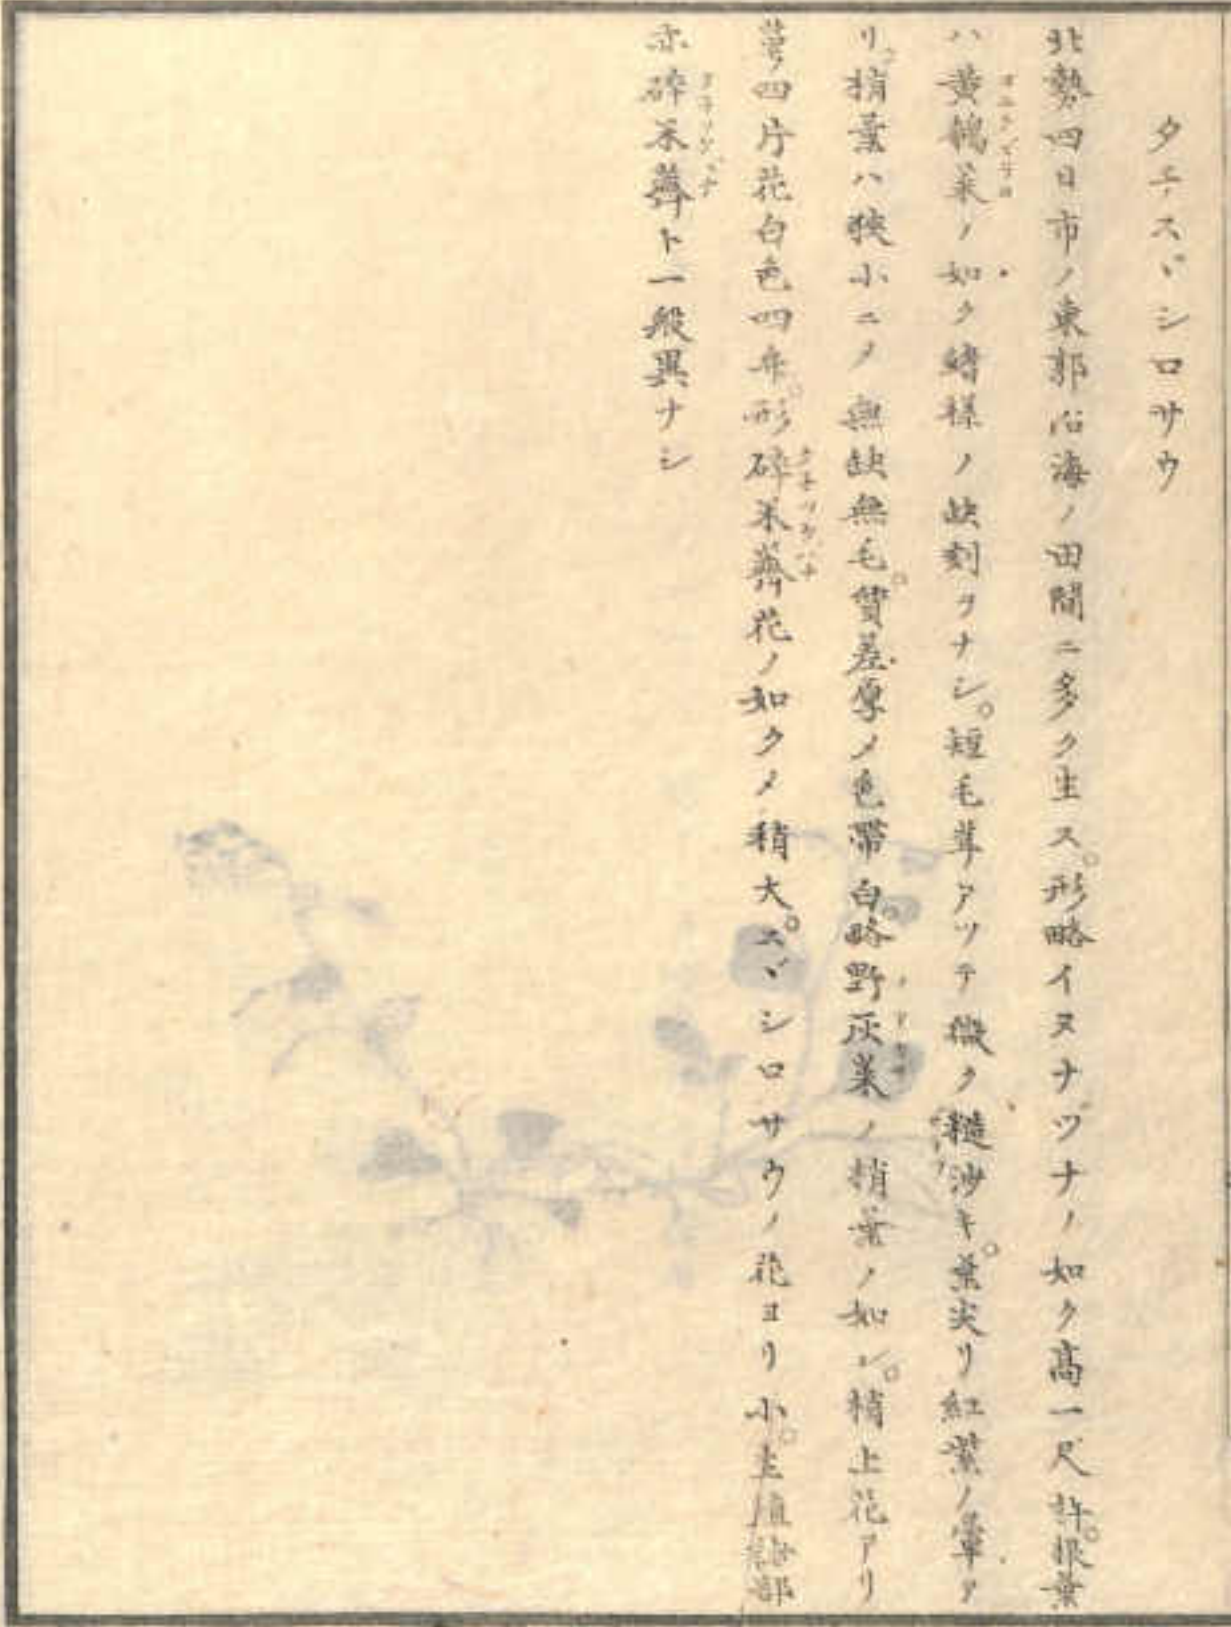 タチスヾシロサウ
北勢四日市ノ東郭沿海ノ田間ニ多ク生ス。形略イヌナヅナノ如ク高一尺許。根葉
ハ黄鵪菜ノ如ク鰭様ノ缺刻ヲナシ。短毛茸アツテ微ク糙渋キ。葉尖リ紅紫ノ暈ア
リ。梢葉ハ狭小ニ〆無缺無毛。質差厚〆色帯白。略野灰菜ノ梢葉ノ如シ。梢上花アリ
萼四片花白色四弁。形碎米薺花ノ如ク〆稍大。スヾシロサウノ花ヨリ小。
亦碎米薺ト一般異ナシ